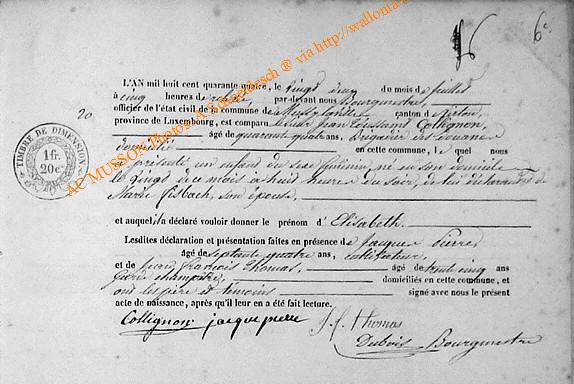 6e
20
TIMBRE DE DIMENSION
1fr. 20c.
L'AN mil huit cent quarante quatre, le vingt deux du mois de juillet
à cinq heures de relevée par-devant nous Bourgmestre,
officier de l'état civil de la commune de Mussy-la-ville canton de Virton,
province de Luxembourg, est comparu le sieur Jean Toussaint Collignon,
âgé de quarante quatre ans, brigadier de douane
domicilié en cette commune, le quel nous
a présenté un enfant du sexe féminin, né en son domicile
le vingt de ce mois à huit heures du soir, de lui déclarant et de
Marie Fisbach, son épouse,
et auquel il a déclaré vouloir donner le prénom d'Elisabeth.
Lesdites déclaration et présentation faites en présence de Jacques Pierre
âgé de septante quatre ans, cultivateur,
et de pierre françois Thomas, âgé de trente cinq ans
garde champêtre, domiciliés en cette commune, et
ont les père et témoins signé avec nous le présent
acte de naissance, après qu'il leur en a été fait lecture.
Collignon jacque pierre J. f. thomas
Dubois Bourgmestre
AC MUSSON Photos A. Ackerdesch ® via http://wallonia